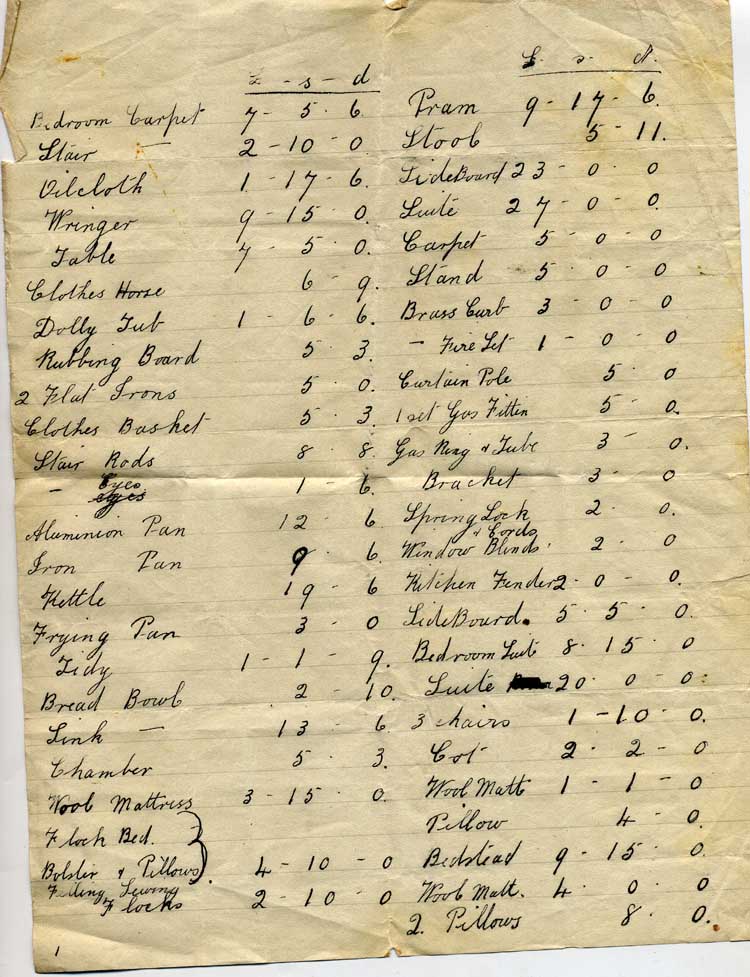 £ - s - d
Bedroom Carpet 7 - 5 - 6.
Stair — 2 - 10 - 0
Oilcloth 1 - 17 - 6.
Wringer 9 - 15 - 0.
Table 7 - 5 - 0.
Clothes Horse 6 - 9.
Dolly Tub 1 - 6 - 6.
Rubbing Board 5 - 3.
2 Flat Irons 5 - 0.
Clothes Basket 5 - 3.
Stair Rods 8 - 8.
— Eyes 1 - 6.
eyes
Aluminion Pan 12 - 6.
Iron Pan 9 - 6.
Kettle 19 - 6
Frying Pan 3 - 0
Tidy 1 - 1 - 9.
Bread Bowl 2 - 10.
Sink — 13 - 6.
Chamber 5 - 3.
Wool Mattress 3 - 15 - 0.
Flock Bed.
Bolster & Pillows. 4 - 10 - 0
Sewing
Flocks 2 - 10 - 0
1
£ - s - d.
Pram 9 - 17 - 6.
Stool 5 - 11.
SideBoard 23 - 0 - 0
Suite 27 - 0 - 0.
Carpet 5 - 0 - 0
Stand 5 - 0 - 0
Brass Curb 3 - 0 - 0
— Fire Set 1 - 0 - 0
Curtain Pole 5 - 0
1 set Gas Fittin 5 - 0.
Gas Ring & Tube 3 - 0.
Bracket 3 - 0
Spring Lock 2 - 0.
& Cords
Window Blinds. 2 - 0
Kitchen Fender 2 - 0 - 0.
SideBoard. 5 - 5 - 0.
Bedroom Suit 8 - 15 - 0
Suite 20 - 0 - 0.
3 chairs 1 - 10 - 0.
Cot 2 - 2 - 0
Wool Matt 1 - 1 - 0
Pillow 4 - 0.
Bedstead 9 - 15 - 0.
Wool Matt. 4 - 0 - 0
2. Pillows 8 - 0.